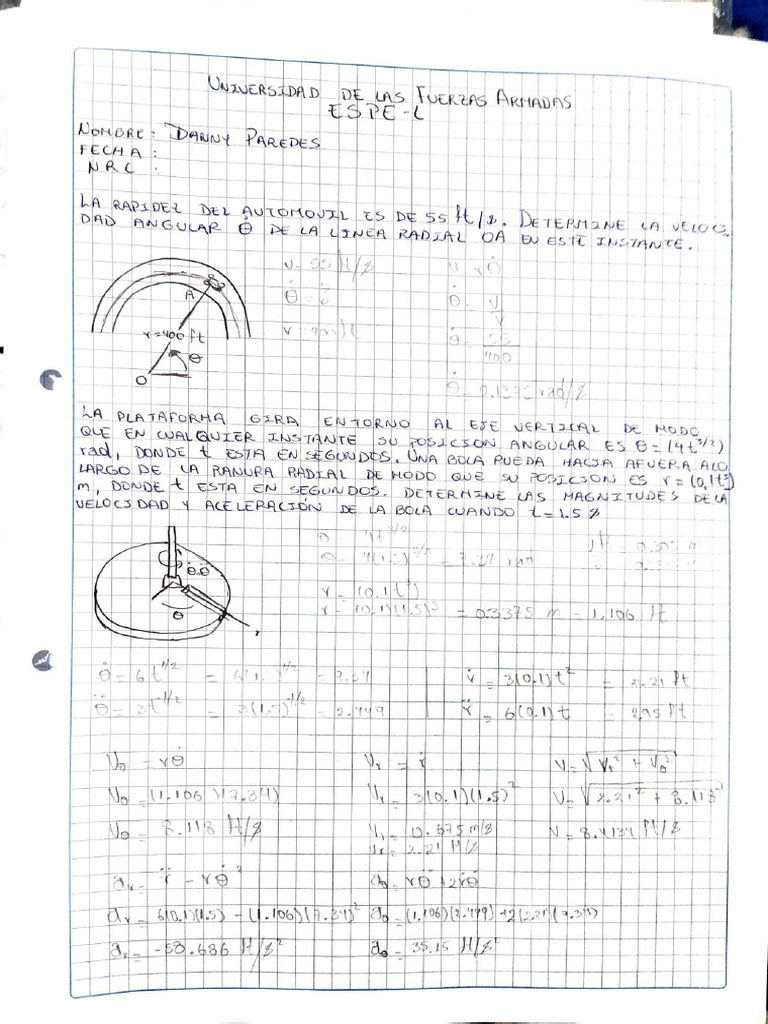 UNIVERSIDAD DE LAS FUERZAS ARMADAS
ESPE-L
NOMBRE: DANNY PAREDES
FECHA:
NRC:
LA RAPIDEZ DEL AUTOMOVIL ES DE 55 ft/s. DETERMINE LA VELOCI-
DAD ANGULAR θ̇ DE LA LINEA RADIAL OA EN ESTE INSTANTE.
A
r=400 ft
θ
O
V= 55 ft/s
θ̇ = ?
θ̇ = V
r
θ̇ = 55
400
θ̇ = 0.1375 rad/s
LA PLATAFORMA GIRA ENTORNO AL EJE VERTICAL DE MODO
QUE EN CUALQUIER INSTANTE SU POSICION ANGULAR ES θ=(4t^3/2)
rad, DONDE t ESTA EN SEGUNDOS. UNA BOLA RUEDA HACIA AFUERA ALO
LARGO DE LA RANURA RADIAL DE MODO QUE SU POSICION ES r=(0,1t³)
m, DONDE t ESTA EN SEGUNDOS. DETERMINE LAS MAGNITUDES DE LA
VELOCIDAD Y ACELERACIÓN DE LA BOLA CUANDO t=1.5 s
θ̇,θ̈
θ
r = (0.1t³)
r = (0.1)(1.5)³ = 0.3375 m = 1.106 ft
θ̇ = 6t^1/2 = 6(1.5)^1/2 = 7.34
θ̈ = 3t^-1/2 = 3(1.5)^-1/2 = 2.449
ṙ = 3(0.1)t² = 2.21 ft
r̈ = 6(0.1)t = 2.95 ft
Vθ = rθ̇
Vθ = (1.106)(7.34)
Vθ = 8.118 ft/s
Vr = ṙ
Vr = 3(0.1)(1.5)²
Vr = 0.675 m/s
Vr = 2.21 ft/s
V=√Vr² + Vθ²
V=√2.21² + 8.118²
V= 8.4134 ft/s
ar = r̈ - rθ̇²
ar = 6(0.1)(1.5) - (1.106)(7.34)²
ar = -58.686 ft/s²
aθ = rθ̈ + 2ṙθ̇
aθ = (1.106)(2.449)+2(2.21)(7.34)
aθ = 35.15 ft/s²